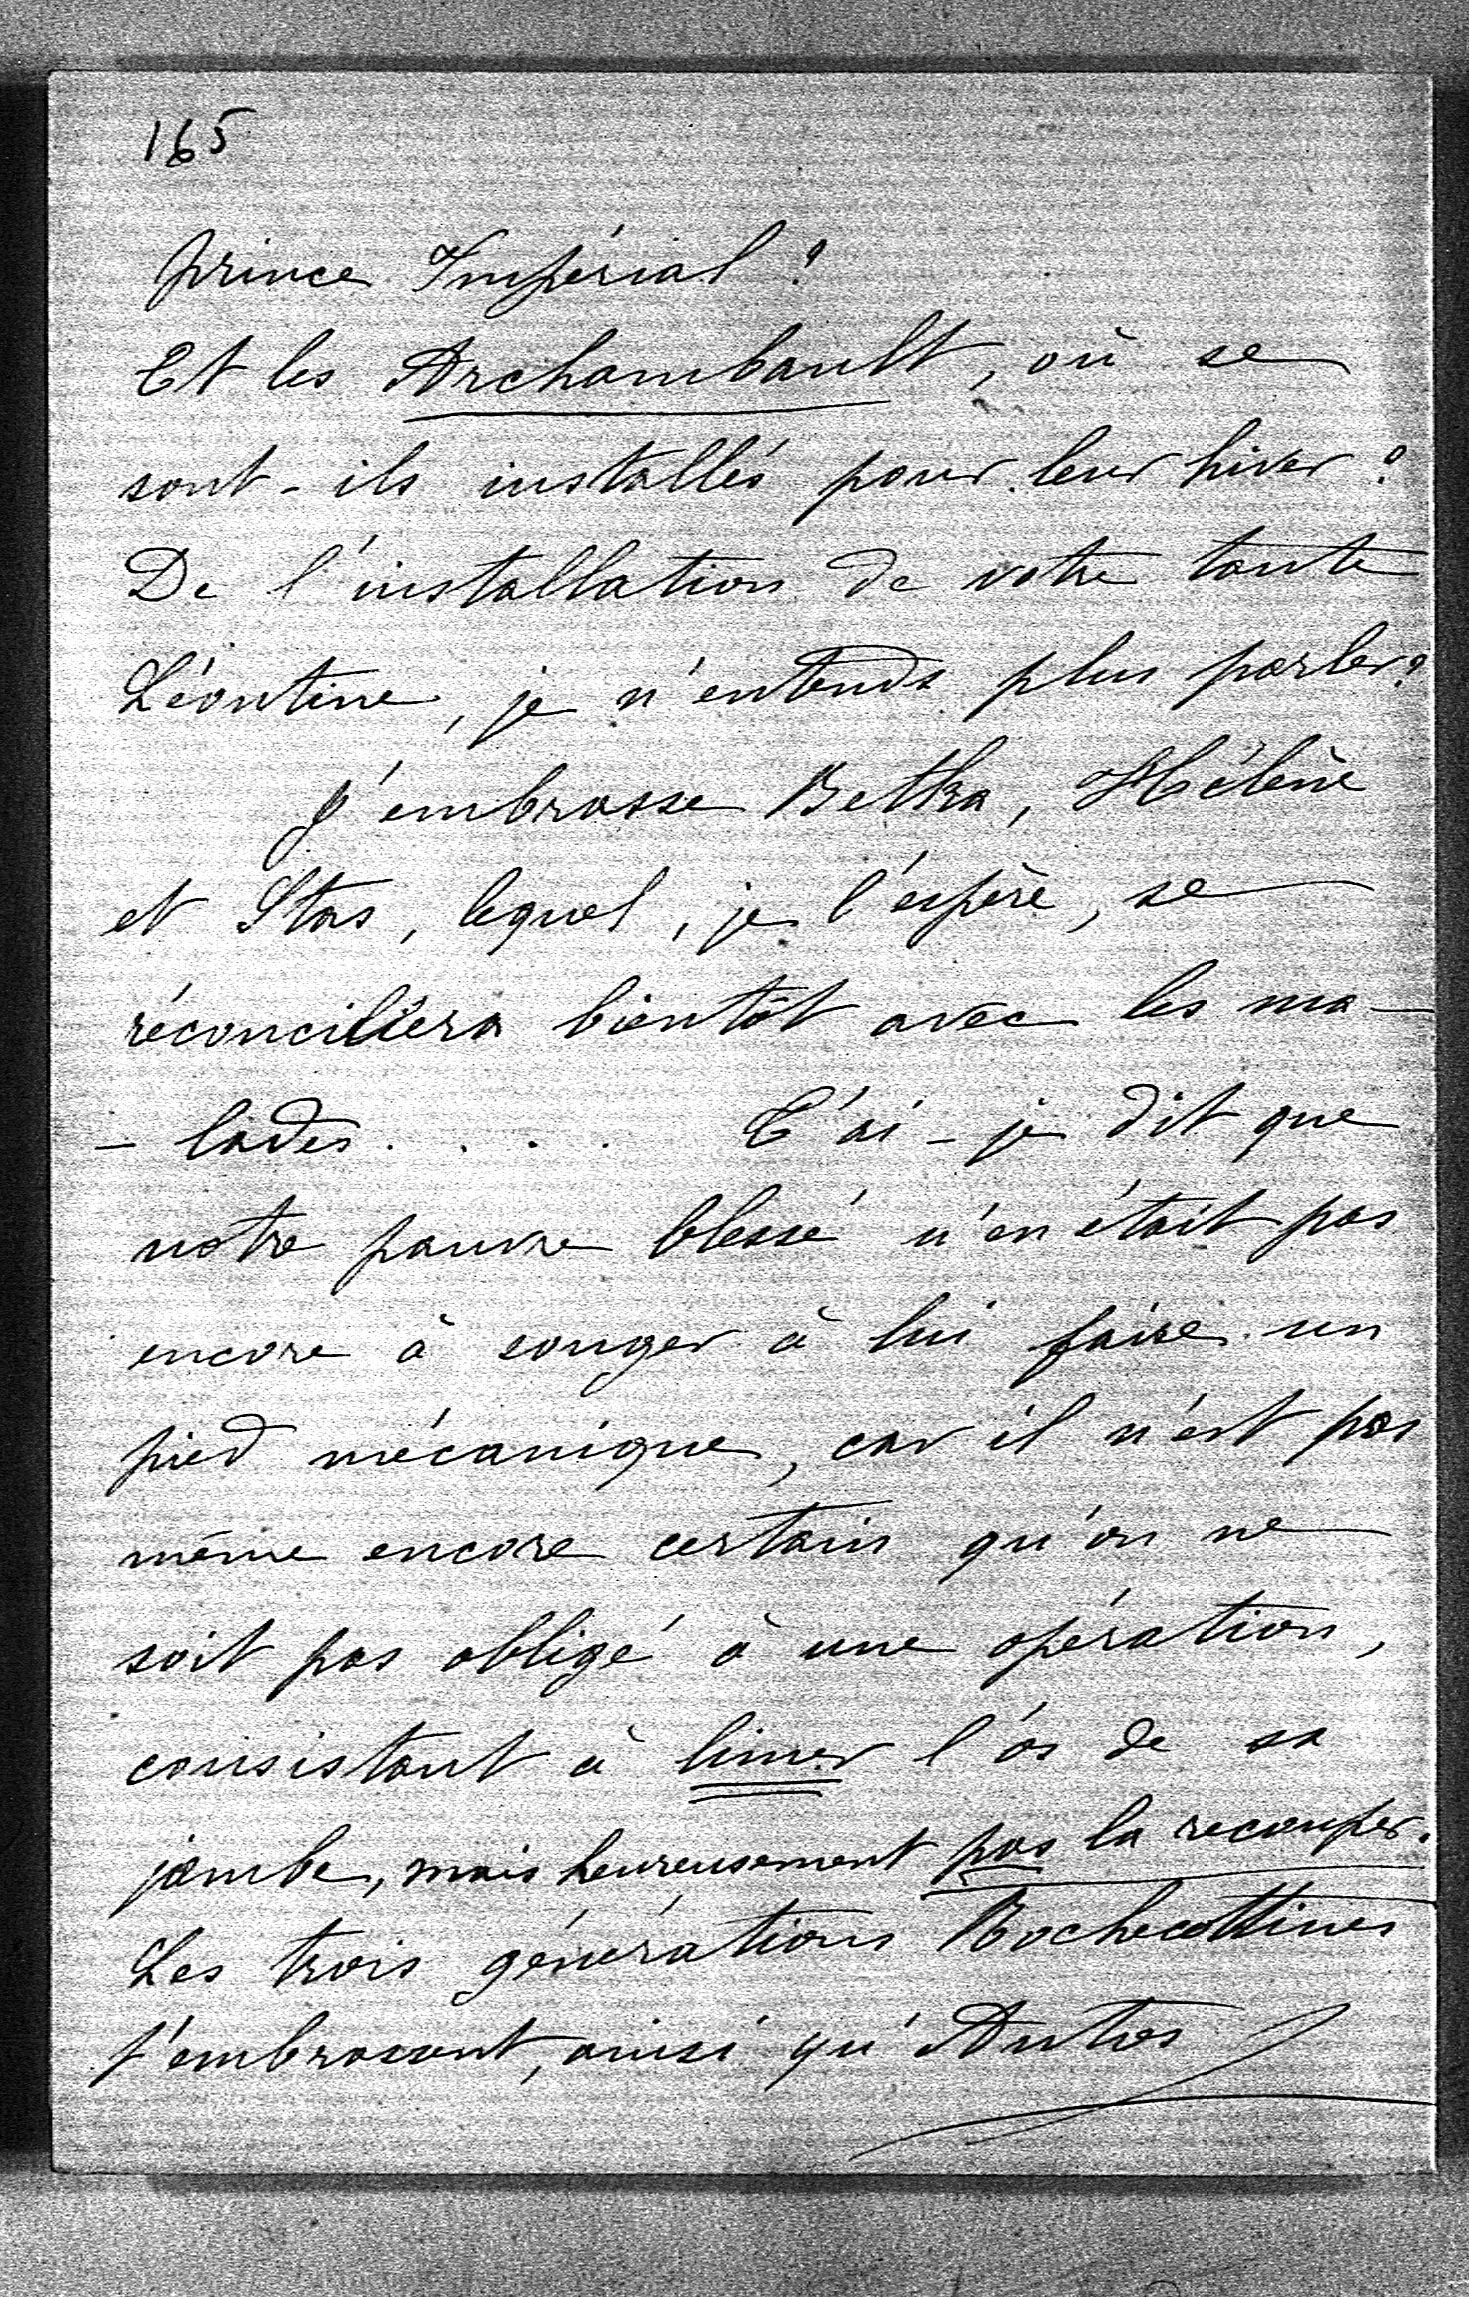 165
prince Impérial ?
Et les Archambault, où se
sont-ils installés pour leur hiver ?
De l'installation de votre tante
Léontine, je n'entends plus parler ?
J'embrasse Betka, Hélène
et Stas, lequel, je l'espère, se
réconciliera bientôt avec les ma-
-lades. . . . T'ai-je dit que
notre pauvre blessé n'en était pas
encore à songer à lui faire un
pied mécanique, car il n'est pas
même encore certain qu'on ne
soit pas obligé à une opération,
consistant à limer l'os de sa
jambe, mais heureusement pas la recouper.
Les trois générations Rochecottines
t'embrassent, ainsi qu'